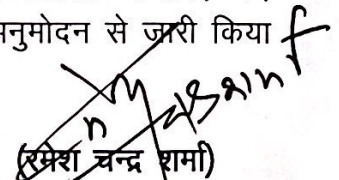 नुमोदन से जारी किया
(रमेश चन्द्र शर्मा)